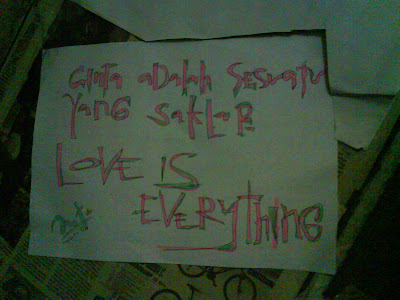 Cinta adalah sesuatu
yang saklar
LOVE IS
EVERYTHING